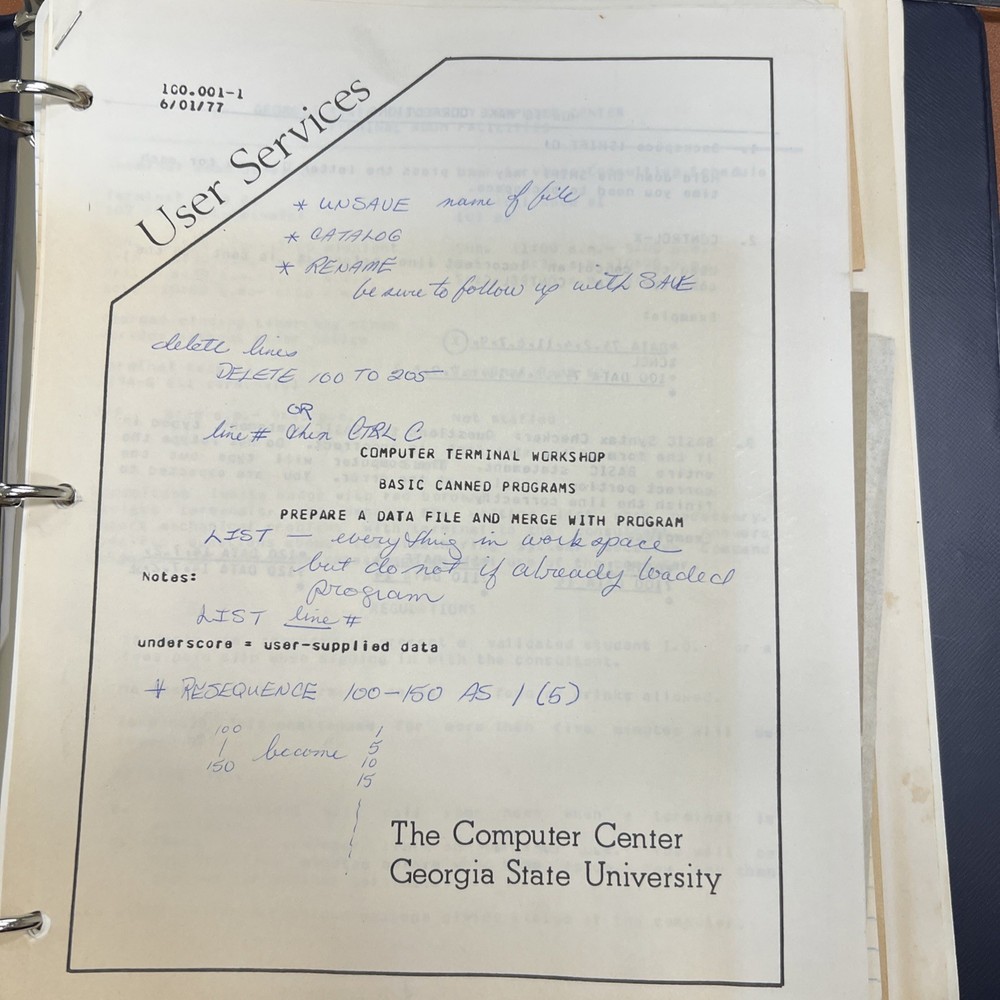 1G0.001-1
6/01/77
User Services
* UNSAVE name of file
* CATALOG
* RENAME
be sure to follow up with SAVE
delete lines
DELETE 100 TO 205
OR
line # then CTRL C
COMPUTER TERMINAL WORKSHOP
BASIC CANNED PROGRAMS
PREPARE A DATA FILE AND MERGE WITH PROGRAM
LIST — everything in workspace
but do not if already loaded
program
Notes:
LIST line #
underscore = user-supplied data
* RESEQUENCE 100-150 AS 1 (5)
100 1
| become 5
150 10
15
The Computer Center
Georgia State University